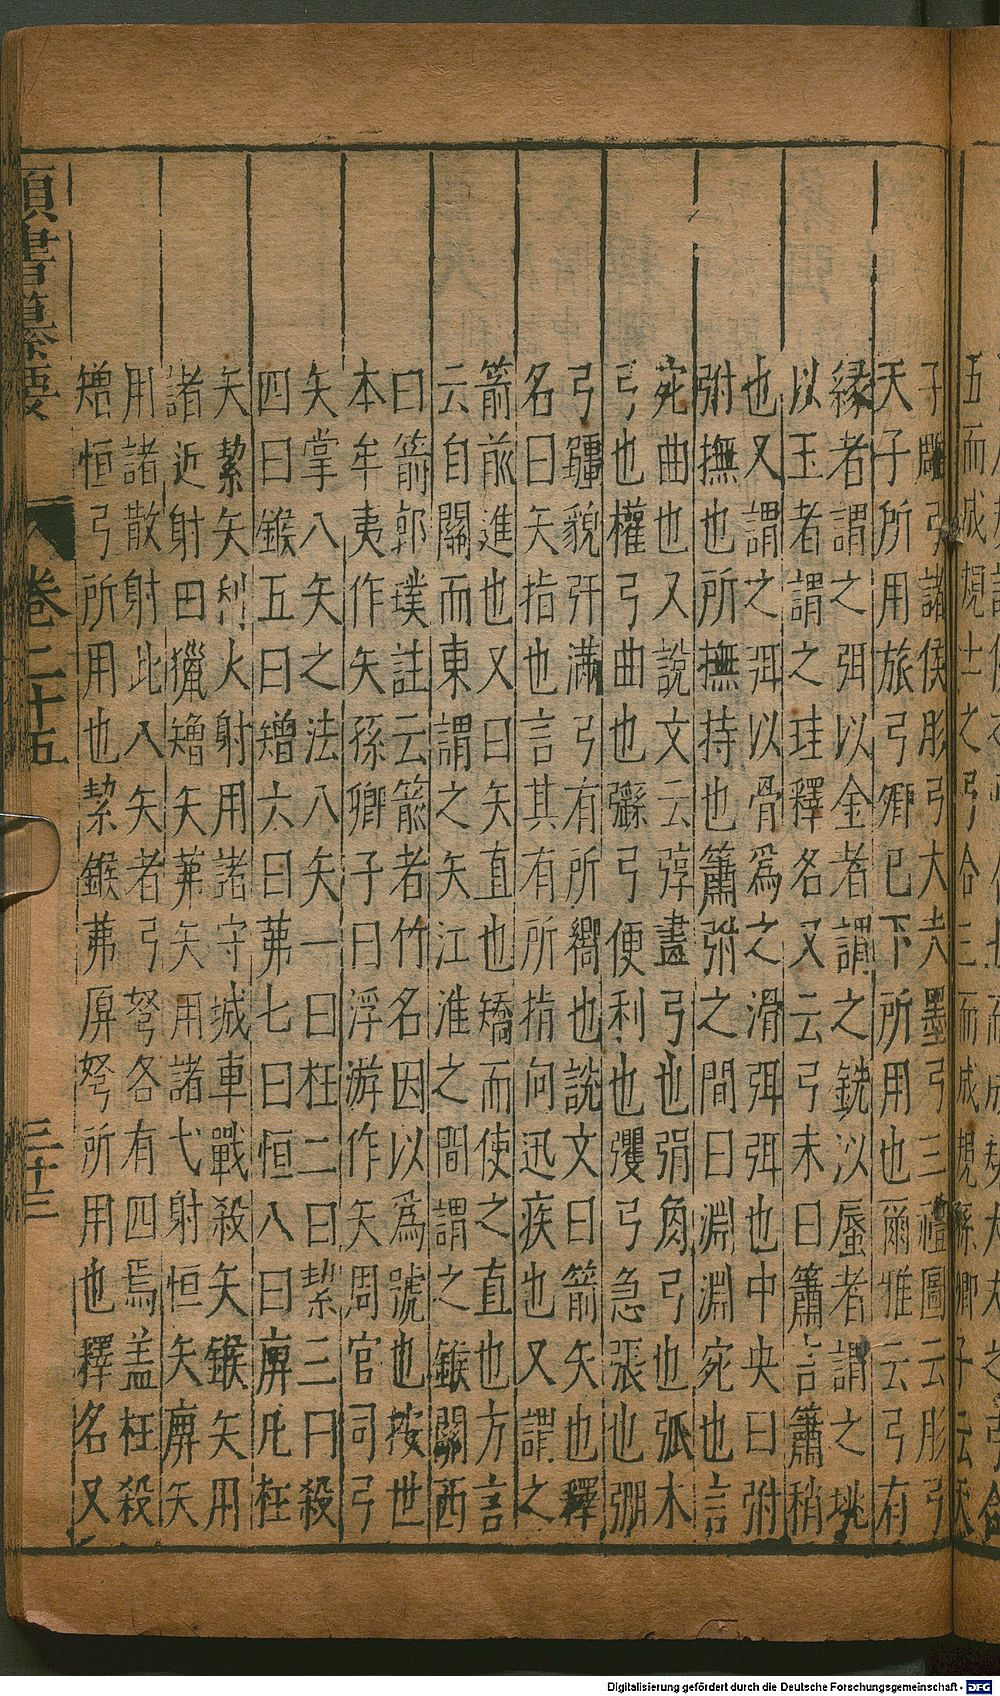 子雕弓諸侯彤弓大夫墨弓三禮圖云彤弓
天子所用旅弓卿已下所用也爾雅云弓有
緣者謂之弭以金者謂之銑以蜃者謂之珧
以玉者謂之珪釋名又云弓末曰簫言簫稍
也又謂之弭以骨爲之滑弭弭也中央曰弣
弣撫也所撫持也簫弣之間曰淵淵宛也言
宛曲也又說文云弴畫弓也弲角弓也弧木
弓也權弓曲也弓便利也彏弓急張也弸
弓彊貌弙滿弓有所嚮也說文曰箭矢也釋
名曰矢指也言其有所指向迅疾也又謂之
箭前進也又曰矢直也矯而使之直也方言
云自關而東謂之矢江淮之間謂之鍭關西
曰箭郭璞註云箭者竹名因以爲號也按世
本牟夷作矢孫卿子曰浮游作矢周官司弓
矢掌八矢之法八矢一曰枉二曰絜三曰殺
四曰鍭五曰矰六曰茀七曰恒八曰庳凡枉
矢絜矢利火射用諸守城車戰殺矢鍭矢用
諸近射田獵矰矢茀矢用諸弋射恒矢庳矢
用諸散射此八矢者弓弩各有四焉盖枉殺
矰恒弓所用也絜鍭茀庳弩所用也釋名又
類書纂要
卷二十五
三十三
Digitalisierung gefördert durch die Deutsche Forschungsgemeinschaft - DFG